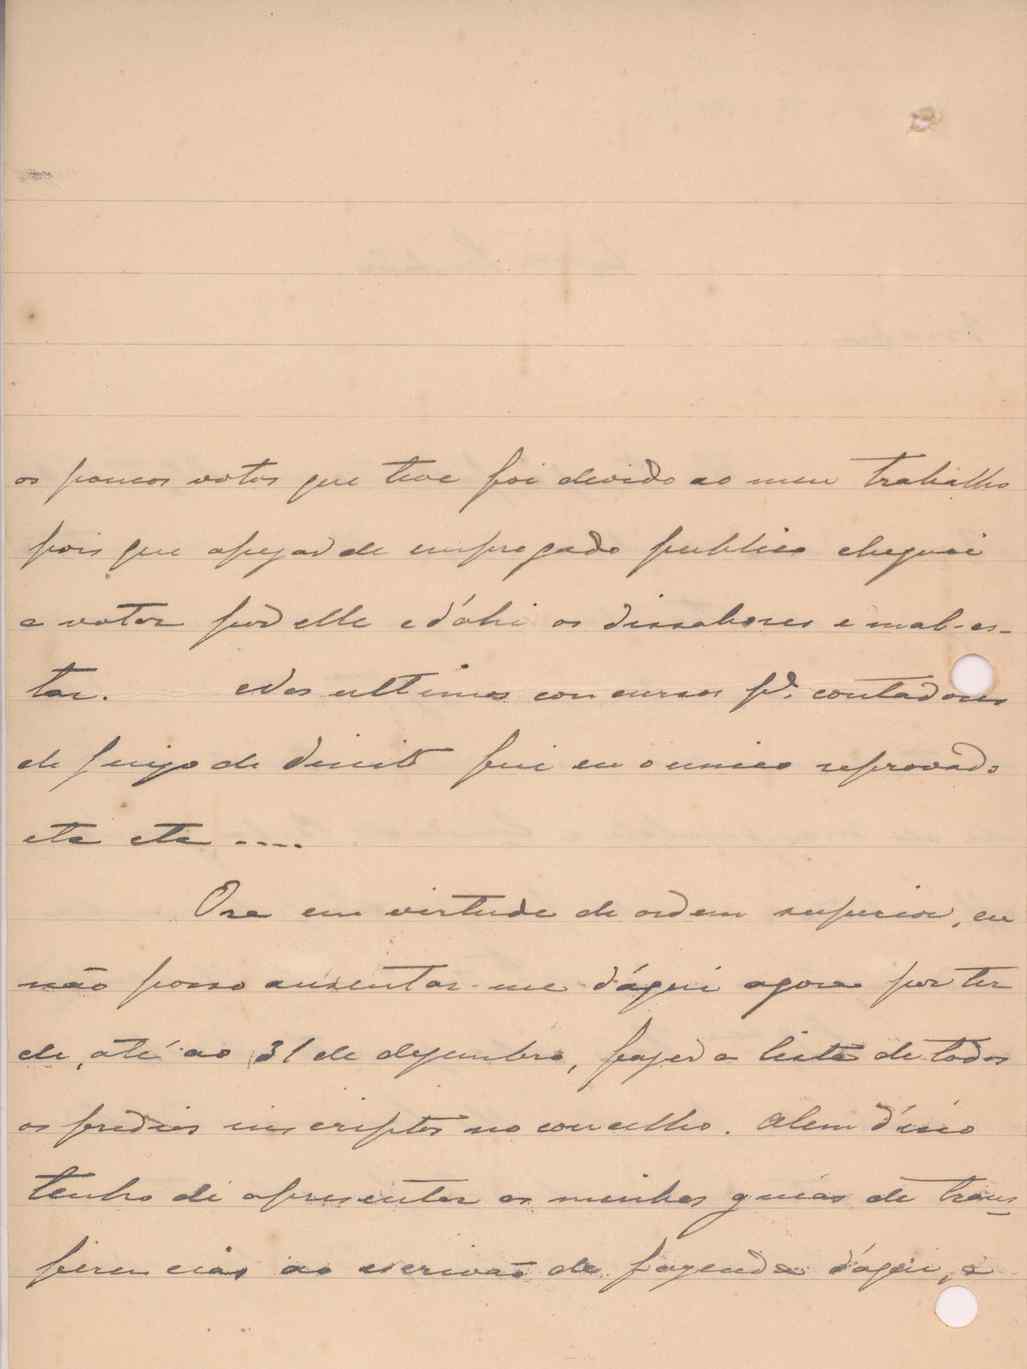 os poucos votos que teve foi devido ao meu trabalho
pois que apezar de empregado publico cheguei
a votar por elle e d'ahi os dissabores e mal-es-
tar. Nos ultimos concursos pª. contadores
de juizo de direito fui eu o unico reprovado
etc etc ....
Ora em virtude de ordem superior, eu
não posso ausentar-me d'aqui agora por ter
de, até ao 31 de dezembro, fazer a lista de todos
os predios inscriptos no concelho. Alem d'isso
tenho de apresentar as minhas guias de trans-
ferencias ao escrivão de fazenda d'aqui, e